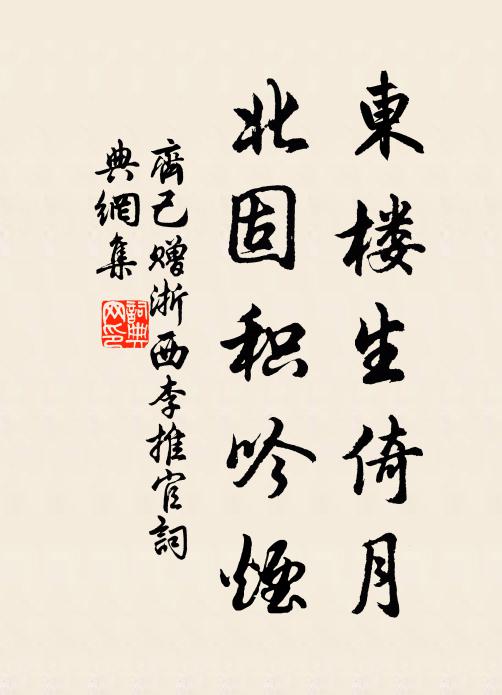 東楼生倚月
北固积吟煙
齊己赠浙西李推官詞
典網集
詞典网印